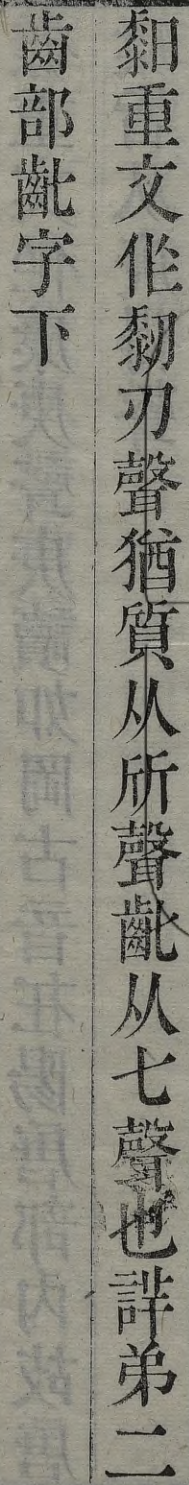 䵒重文作䵑刃聲猶質从斦聲齔从七聲也詳弟二
齒部齔字下